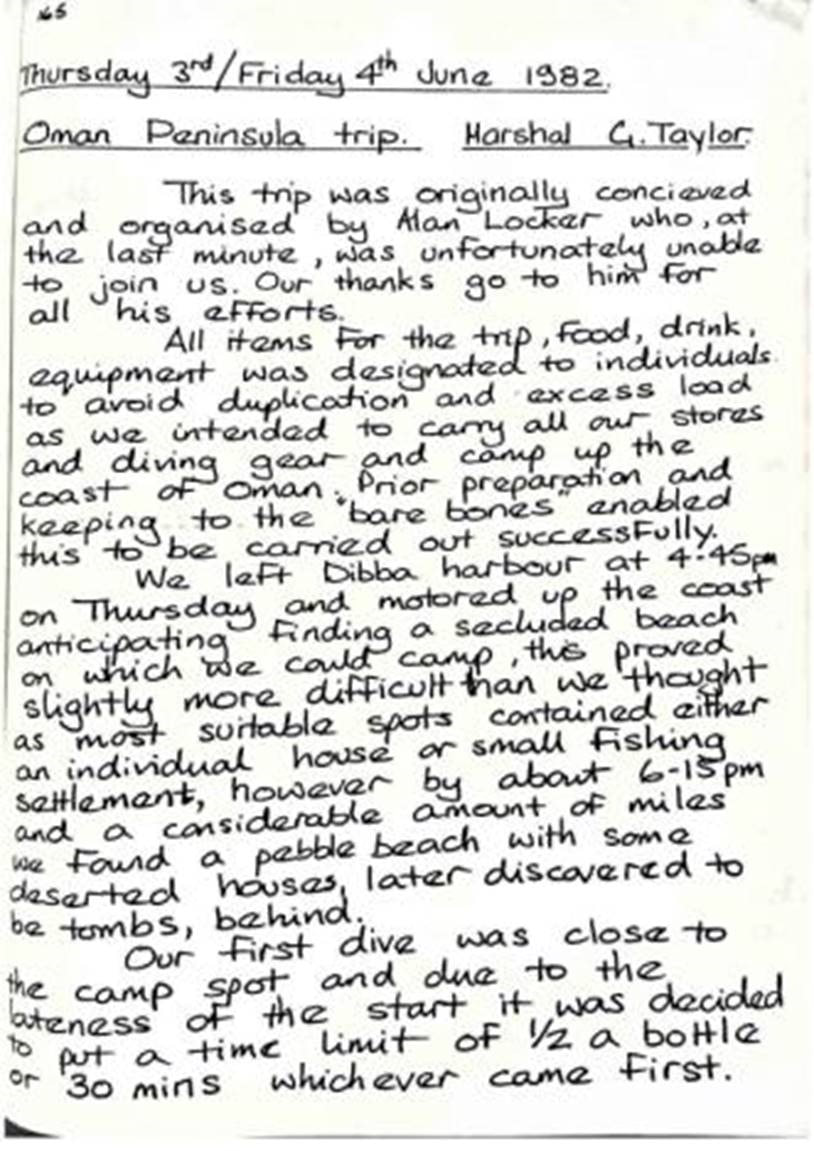 65
Thursday 3rd/Friday 4th June 1982.
Oman Peninsula trip. Marshal G. Taylor.
This trip was originally concieved
and organised by Alan Locker who, at
the last minute, was unfortunately unable
to join us. Our thanks go to him for
all his efforts.
All items for the trip, food, drink,
equipment was designated to individuals
to avoid duplication and excess load
as we intended to carry all our stores
and diving gear and camp up the
coast of Oman. Prior preparation and
keeping to the "bare bones" enabled
this to be carried out successfully.
We left Dibba harbour at 4-45pm
on Thursday and motored up the coast
anticipating finding a secluded beach
on which we could camp, this proved
slightly more difficult than we thought
as most suitable spots contained either
an individual house or small fishing
settlement, however by about 6-15pm
and a considerable amount of miles
we found a pebble beach with some
deserted houses, later discovered to
be tombs, behind.
Our first dive was close to
the camp spot and due to the
lateness of the start it was decided
to put a time limit of 1/2 a bottle
or 30 mins whichever came first.